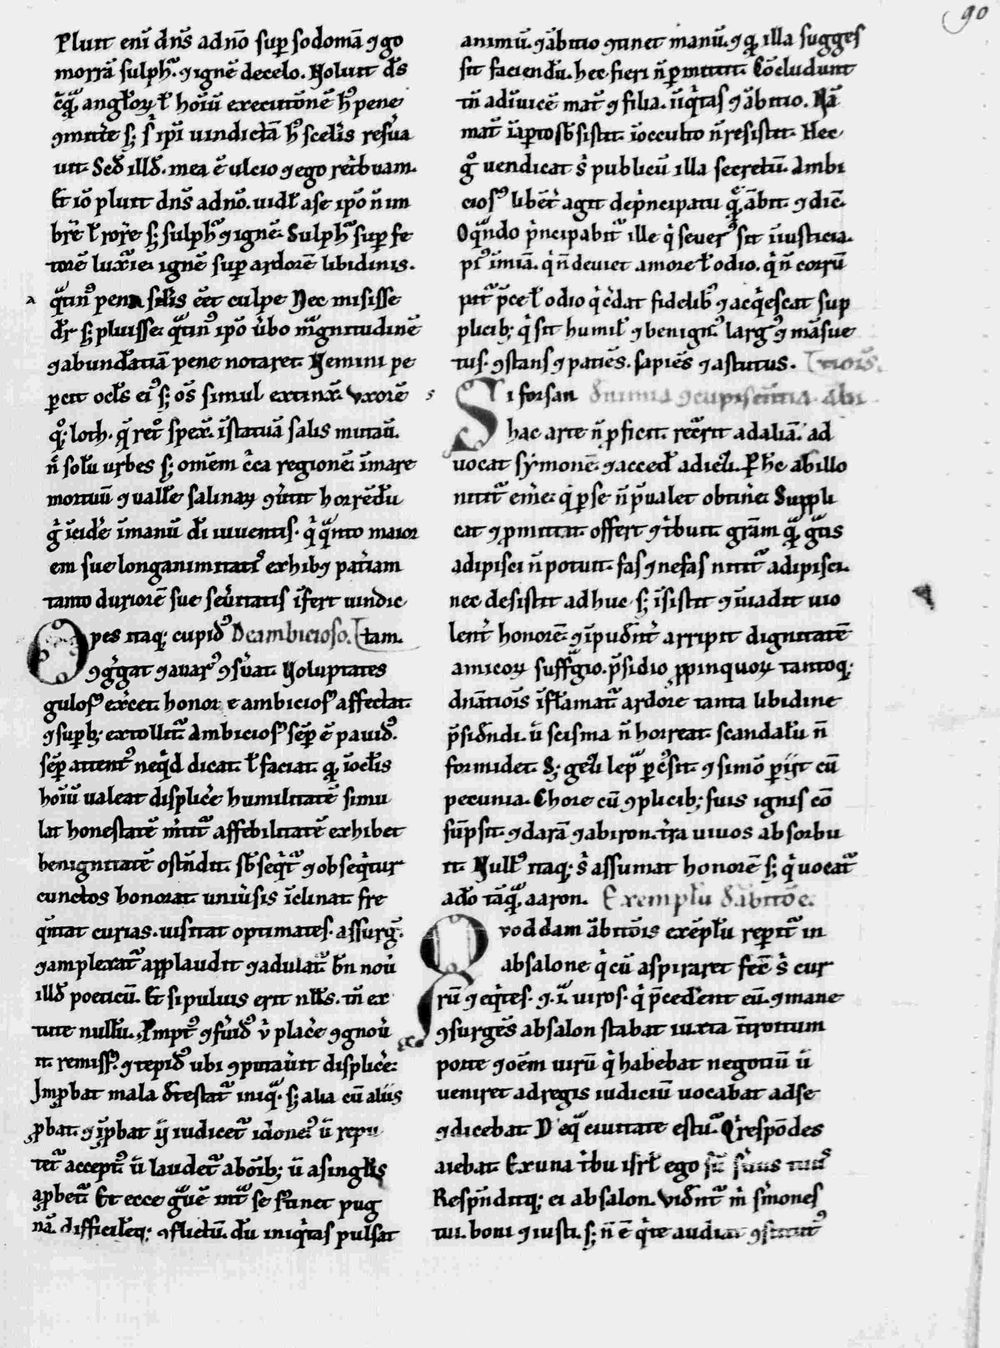 90
Pluit eni᷒ dn̄s ad nō sup̲ sodomā ⁊ go
morrā sulph᷒. ⁊ ignē de celo. Noluit d̄s
angl̄oꝝ ł hoīū executōnē h᷒ pene
ꝯmitte s; s̄ ip̄i uindictā h᷒ scel̄is res̄ua
uit. Sed̄ illd̄. mea ē ulcio ⁊ ego ret̄buam.
Et iō pluit dn̄s ad nō. uidł a se ip̄o n̄ im
br̄e ł ror̄e s; sulph᷒ ⁊ ignē. Sulph᷒ sup̲ fe
torē lux̄ie. ignē sup̲ ardorē libidinis.
pena eet culpe Nec misisse
dr̄ s; pluisse. ip̄o ūbo mͣgnitudinē
⁊ abundātiā pene notaret. Nemini pe
percit ocl̄s ei᷒ s; os̄ simul extinx̄. Vxorē
qͦ; loth. q̄ ret᷒ spex̄. ī statuā salis mutaū.
n̄ solū urbes s; omēm c̄ca regionē ī mare
mortuū ⁊ uallē salinaꝝ horrēdū
ḡ īcid̄e ī manū dī uiuentis. qͥ qͣnto maior
em sue longanimitatis exhib; patīam
tanto duriorē sue seūitatis īfert uindic
Opes itaq; cupid᷒ De ambicioso. tam.
ꝯgͣgat ⁊ auar᷒ ꝯs̄uat. Voluptates
gulos᷒ exc̄et. honor̄ ambicios᷒ affectat.
⁊ sup̲b; extollit᷒. Ambicios᷒ sep̲ ē pauid᷒.
sep̲ attent᷒ ne qͥd dicat ł faciat. qͣ ī ocl̄is
hoīū ualeat displic̄e humilitatē simu
lat honestatē m̄tit᷒ affabilitatē exhibet
benignitatē ostn̄dit. sb̄seqͥt᷒ ⁊ obseqͥtur
cunctos honorat. uniūsis īclinat. fre
qn̄tat curias. uisitat optimates. assurgͥ.
⁊ amplexat᷒ applaudit ⁊ adulat᷒. bn̄ nou̇
illd̄ poeticū. Et si puluis erit nll̄s. tn̄ ex
cute nullū. Pmpt᷒ ⁊ fūid᷒ ū place ꝯgnoū
it. remiss᷒. ⁊ tepid᷒ ubi ꝯputaūit displic̄e.
Imp̲bat mala detestat᷒ iniqͣ. s; alia cū aliis
ꝓbat. ⁊ īp̲bat iudicet᷒ idone᷒ ū repu
tet᷒ accept᷒ ū laudet᷒ ab oīb; ū a singl̄is
ap̲bet᷒ Et ecce gͣuē int᷒ se s᷒tinet pug
nā. difficilēq; ꝯflictū. dū iniqͥtas pulsat
animū. ⁊ ābitio ꝯtinet manū. ⁊ qͣ illa sugges
sit faciendū. hec fieri n̄ p̲mittit. Cōcludunt
tn̄ ad īuicē mat̄ ⁊ filia. īiqͥtas ⁊ ābitio. Nā
mat̄ ī ap̲to sb̄sistit. ī occulto n̄ resistit. Hec
gͦ uendicat s̄ publicū illa secretū. Ambi
cios᷒ libēt agit de p̄ncipatu qͤ̄ ābit. ⁊ diē.
O qn̄do p̄ncipabit᷒ ille qͥ seuer᷒ sit ī iusticia.
pi᷒ ī mīa. qͥ n̄ deuiet amore ł odio. qͥ n̄ corrū
pit᷒ p̄ce ł odio qͥ c̄dat fidelib᷒ ⁊ acqͥescat sup
plicib; qͥ sit humil̄ ⁊ benign᷒. larg᷒ ⁊ māsue
tus. ꝯstans ⁊ patiēs. sapiēs ⁊ astutus.
Si forsan ꝯcupiscētia abi
hac arte n̄ p̲ficit. recr̄it ad aliā. ad
uocat symonē. ⁊ acced̄ ad ieȝi. P̲ he ab illo
nitit᷒ emē. qͥ p̲ se n̄ p̄ualet obtin̄e. Suppli
cat ⁊ p̲mittit. offert ⁊ t̄buit grām qͣ gͣtis
adipisci n̄ potuit. fas ⁊ nefas nitit᷒ adipisci.
nec desistit ad huc. s; īsistit ⁊ īuadit uio
lent̄ honorē. ⁊ īpud̄nt̄ arripit dignitatē
amicoꝝ suffͣgio. p̄sidio ꝓpinquoꝝ. tantoq;
dn̄atiois īflamat᷒ ardore tanta libidine
p̄sid̄ndi. ū scisma n̄ horreat. scandalū n̄
formidet. S; geȝi lep̄ p̲c̄sit. ⁊ simō p̲iit cū
pecunia. Chore cū ꝯplicib; suis ignis cō
sūpsit. ⁊ datā ⁊ abiron. t̄ra uiuos absorbu
it. Null᷒ itaq; s̄ assumat honorē s; qͥ uocat᷒
a dō tāqͣ aaron. Exemplū de ābitōe.
Quoddam ābitōis exēplū rep̲it᷒ in
absalone. qͥ cū aspiraret fec̄ s̄ cur
rū ⁊ eqͥtes. ⁊ .l. uiros. qͥ p̄cedēnt eū. ⁊ mane
ꝯsurgēs absalon stabat iuxta ītroitum
porte ⁊ oēm uirū qͥ habebat negotiū ū
ueniret ad regis iudiciū uocabat ad se
⁊ dicebat. De qͣ ciuitate es tu. Qͥ respōdēs
aiebat. Ex una t̄bu isrł ego sū s̄uus tuus
Respn̄ditq; ei absalon. Vid̄nt᷒ m̄ s̄mones
tui. boni ⁊ iusti. s; n̄ ē qͥ te audiat ꝯstitut᷒